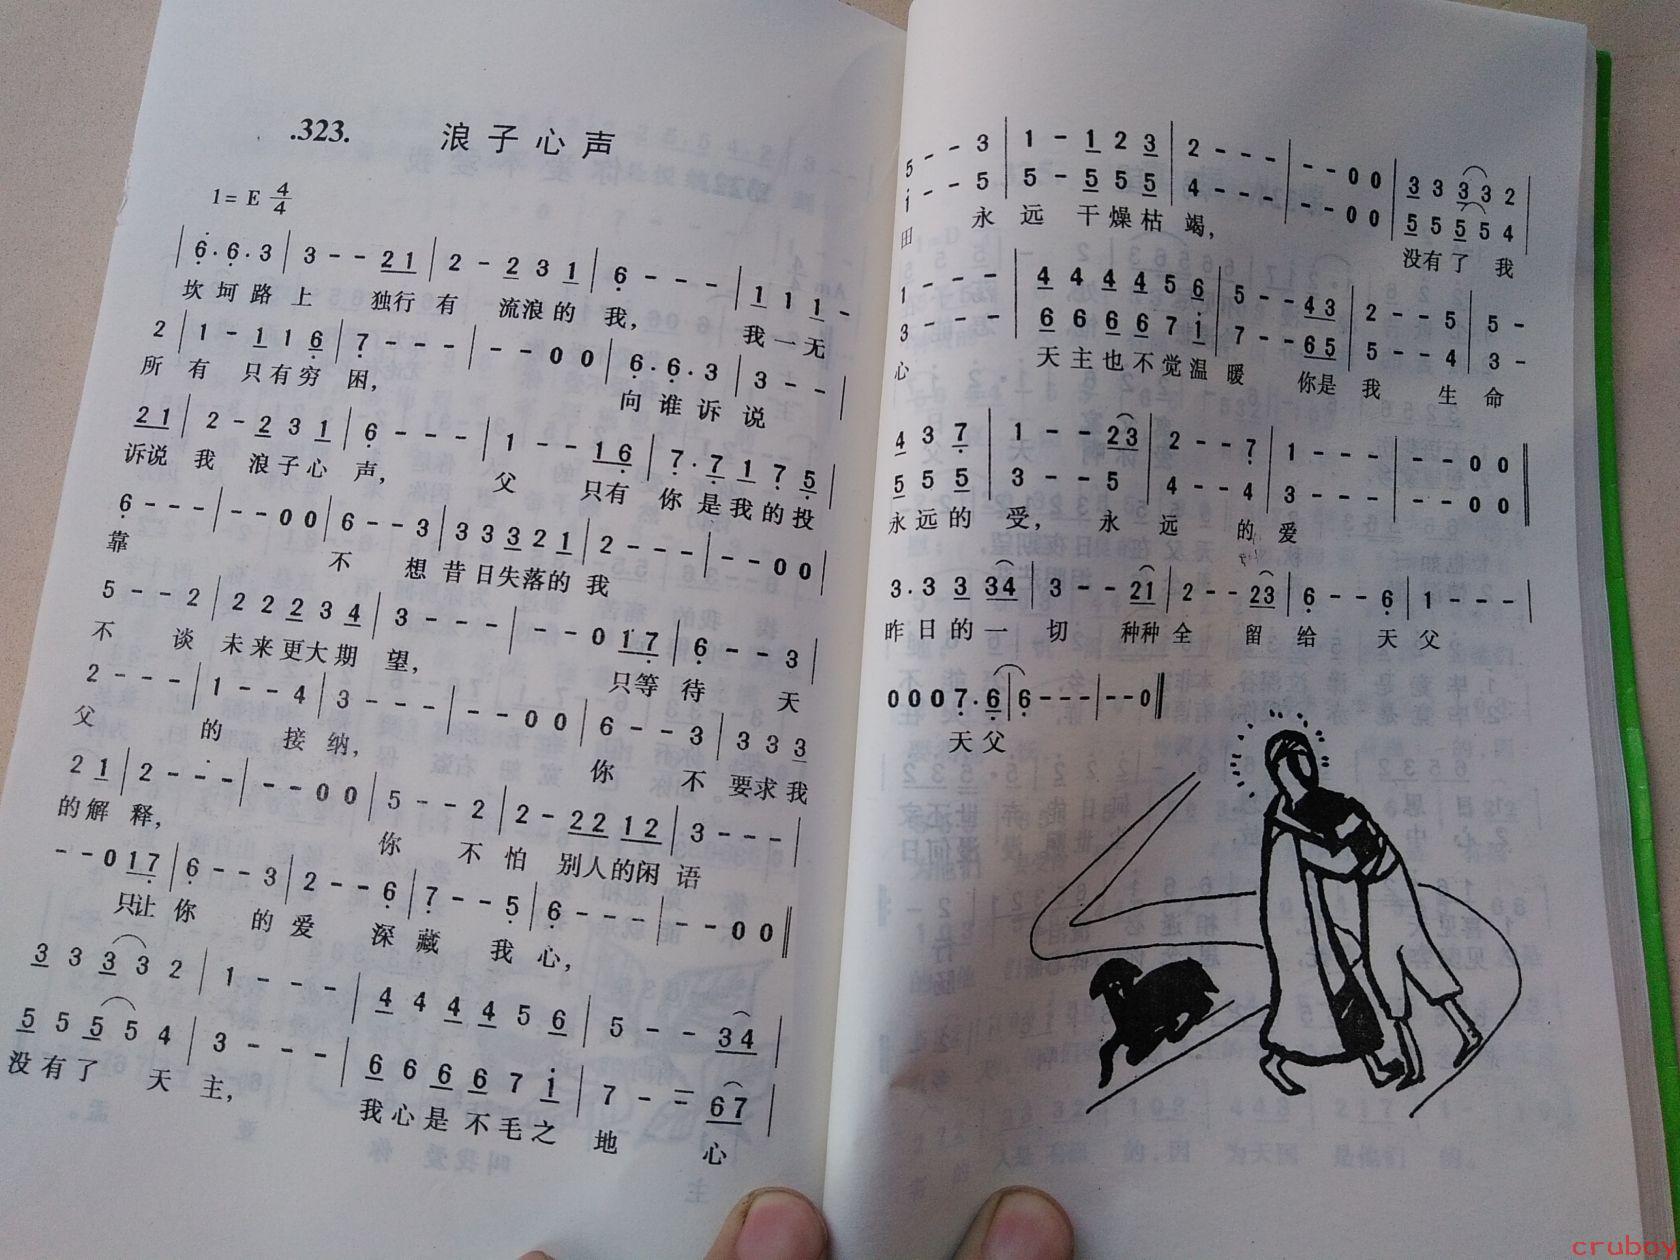 .323. 浪子心声
1= E 4/4
6·6·3 | 3 - - 2 1 | 2 - 2 3 1 | 6 - - - | 1 1 1 -
坎坷路上 独行有 流浪的我, 我一无
2 | 1 - 1 1 6 | 7 - - - | - - 0 0 | 6·6·3 | 3 - - |
所有 只有穷困, 向谁诉说
2 1 | 2 - 2 3 1 | 6 - - - | 1 - - 1 6 | 7·7 1 7 5 |
诉说我 浪子心声, 父 只有你是我的投
6 - - - | - - 0 0 | 6 - - 3 | 3 3 3 2 1 | 2 - - - | - - 0 0 |
靠 不 想昔日失落的我
5 - - 2 | 2 2 2 3 4 | 3 - - - | - - 0 1 7 | 6 - - 3 |
不 谈未来更大期望, 只等待 天
2 - - - | 1 - - 4 | 3 - - - | - - 0 0 | 6 - - 3 | 3 3 3
父 的接纳, 你 不要求我
2 1 | 2 - - - | - - 0 0 | 5 - - 2 | 2 - 2 2 1 2 | 3 - - - |
的解释, 你 不怕 别人的闲语
- - 0 1 7 | 6 - - 3 | 2 - - 6 | 7 - - 5 | 6 - - - | - - 0 0 ‖
只让你 的爱 深藏 我心,
3 3 3 3 2 | 1 - - - | 4 4 4 4 5 6 | 5 - - 3 4 |
5 5 5 5 4 | 3 - - - | 6 6 6 6 7 1 | 7 - - 6 7 |
没有了 天主, 我心是不毛之地 心
5 - - 3 | 1 - 1 2 3 | 2 - - - | - - 0 0 | 3 3 3 3 2 |
1 - - 5 | 5 - 5 5 5 | 4 - - - | - - 0 0 | 5 5 5 5 4 |
田 永远 干燥枯竭, 没有了 我
1 - - - | 4 4 4 4 5 6 | 5 - - 4 3 | 2 - - 5 | 5 -
3 - - - | 6 6 6 6 7 1 | 7 - - 6 5 | 5 - - 4 | 3 -
心 天主也不觉温暖 你是我 生命
4 3 7 | 1 - - 2 3 | 2 - - 7 | 1 - - - | - - 0 0 ‖
5 5 5 | 3 - - 5 | 4 - - 4 | 3 - - - | - - 0 0 ‖
永远的爱, 永远 的爱
3·3 3 3 4 | 3 - - 2 1 | 2 - - 2 3 | 6 - - 6 | 1 - - - |
昨日的一切 种种全 留给 天父
0 0 0 7·6 | 6 - - - | - - 0 ‖
天父
cruboy